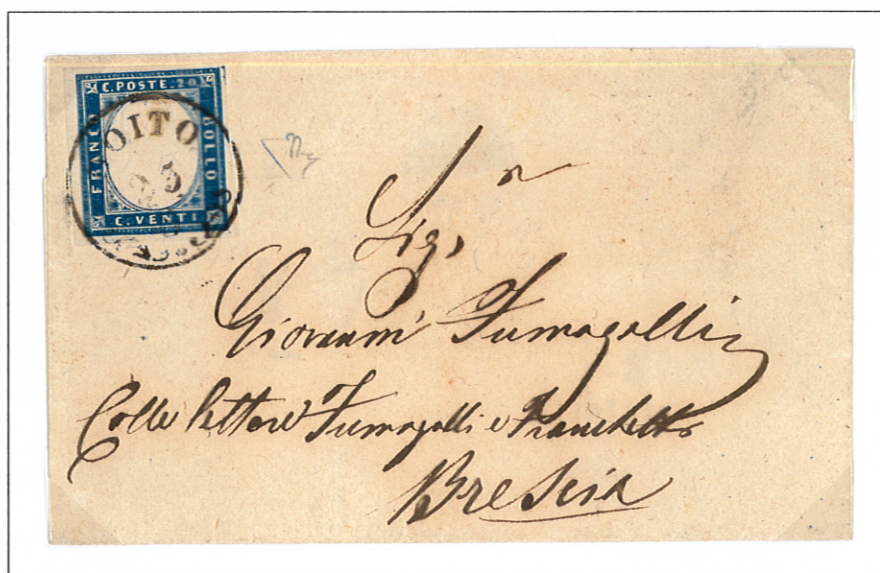 C. POSTE. 20
FRANCO
BOLLO
C. VENTI
GOITO
25
Sigr
Giovanni Fumagalli
Colle lettere Fumagalli e Franchetti
Brescia